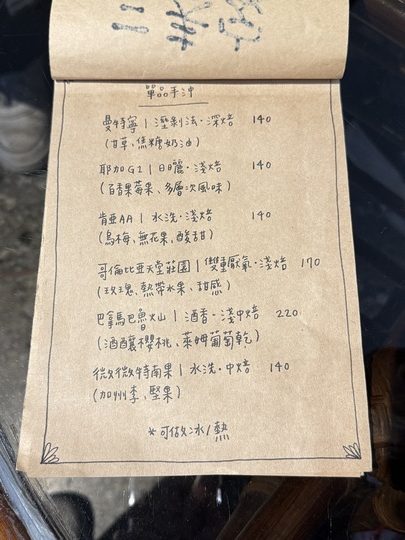 單品手沖
曼特寧 | 溼剝法・深焙 140
(甘草、焦糖奶油)
耶加G1 | 日曬・淺焙 140
(百香果莓果、多層次風味)
肯亞AA | 水洗・淺焙 140
(烏梅、無花果、酸甜)
哥倫比亞天堂莊園 | 雙重厭氧・淺焙 170
(玫瑰、熱帶水果、甜感)
巴拿馬巴魯火山 | 酒香・淺中焙 220
(酒釀櫻桃、萊姆葡萄乾)
微微特南果 | 水洗・中焙 140
(加州李、堅果)
*可做冰/熱